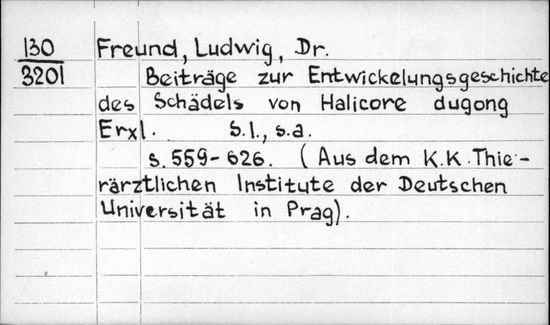 130 Freund, Ludwig, Dr.
3201 Beiträge zur Entwickelungsgeschichte
des Schädels von Halicore dugong
Erxl. S.l., s.a.
s. 559-626. (Aus dem K.K. Thie-
rärztlichen Institute der Deutschen
Universität in Prag).